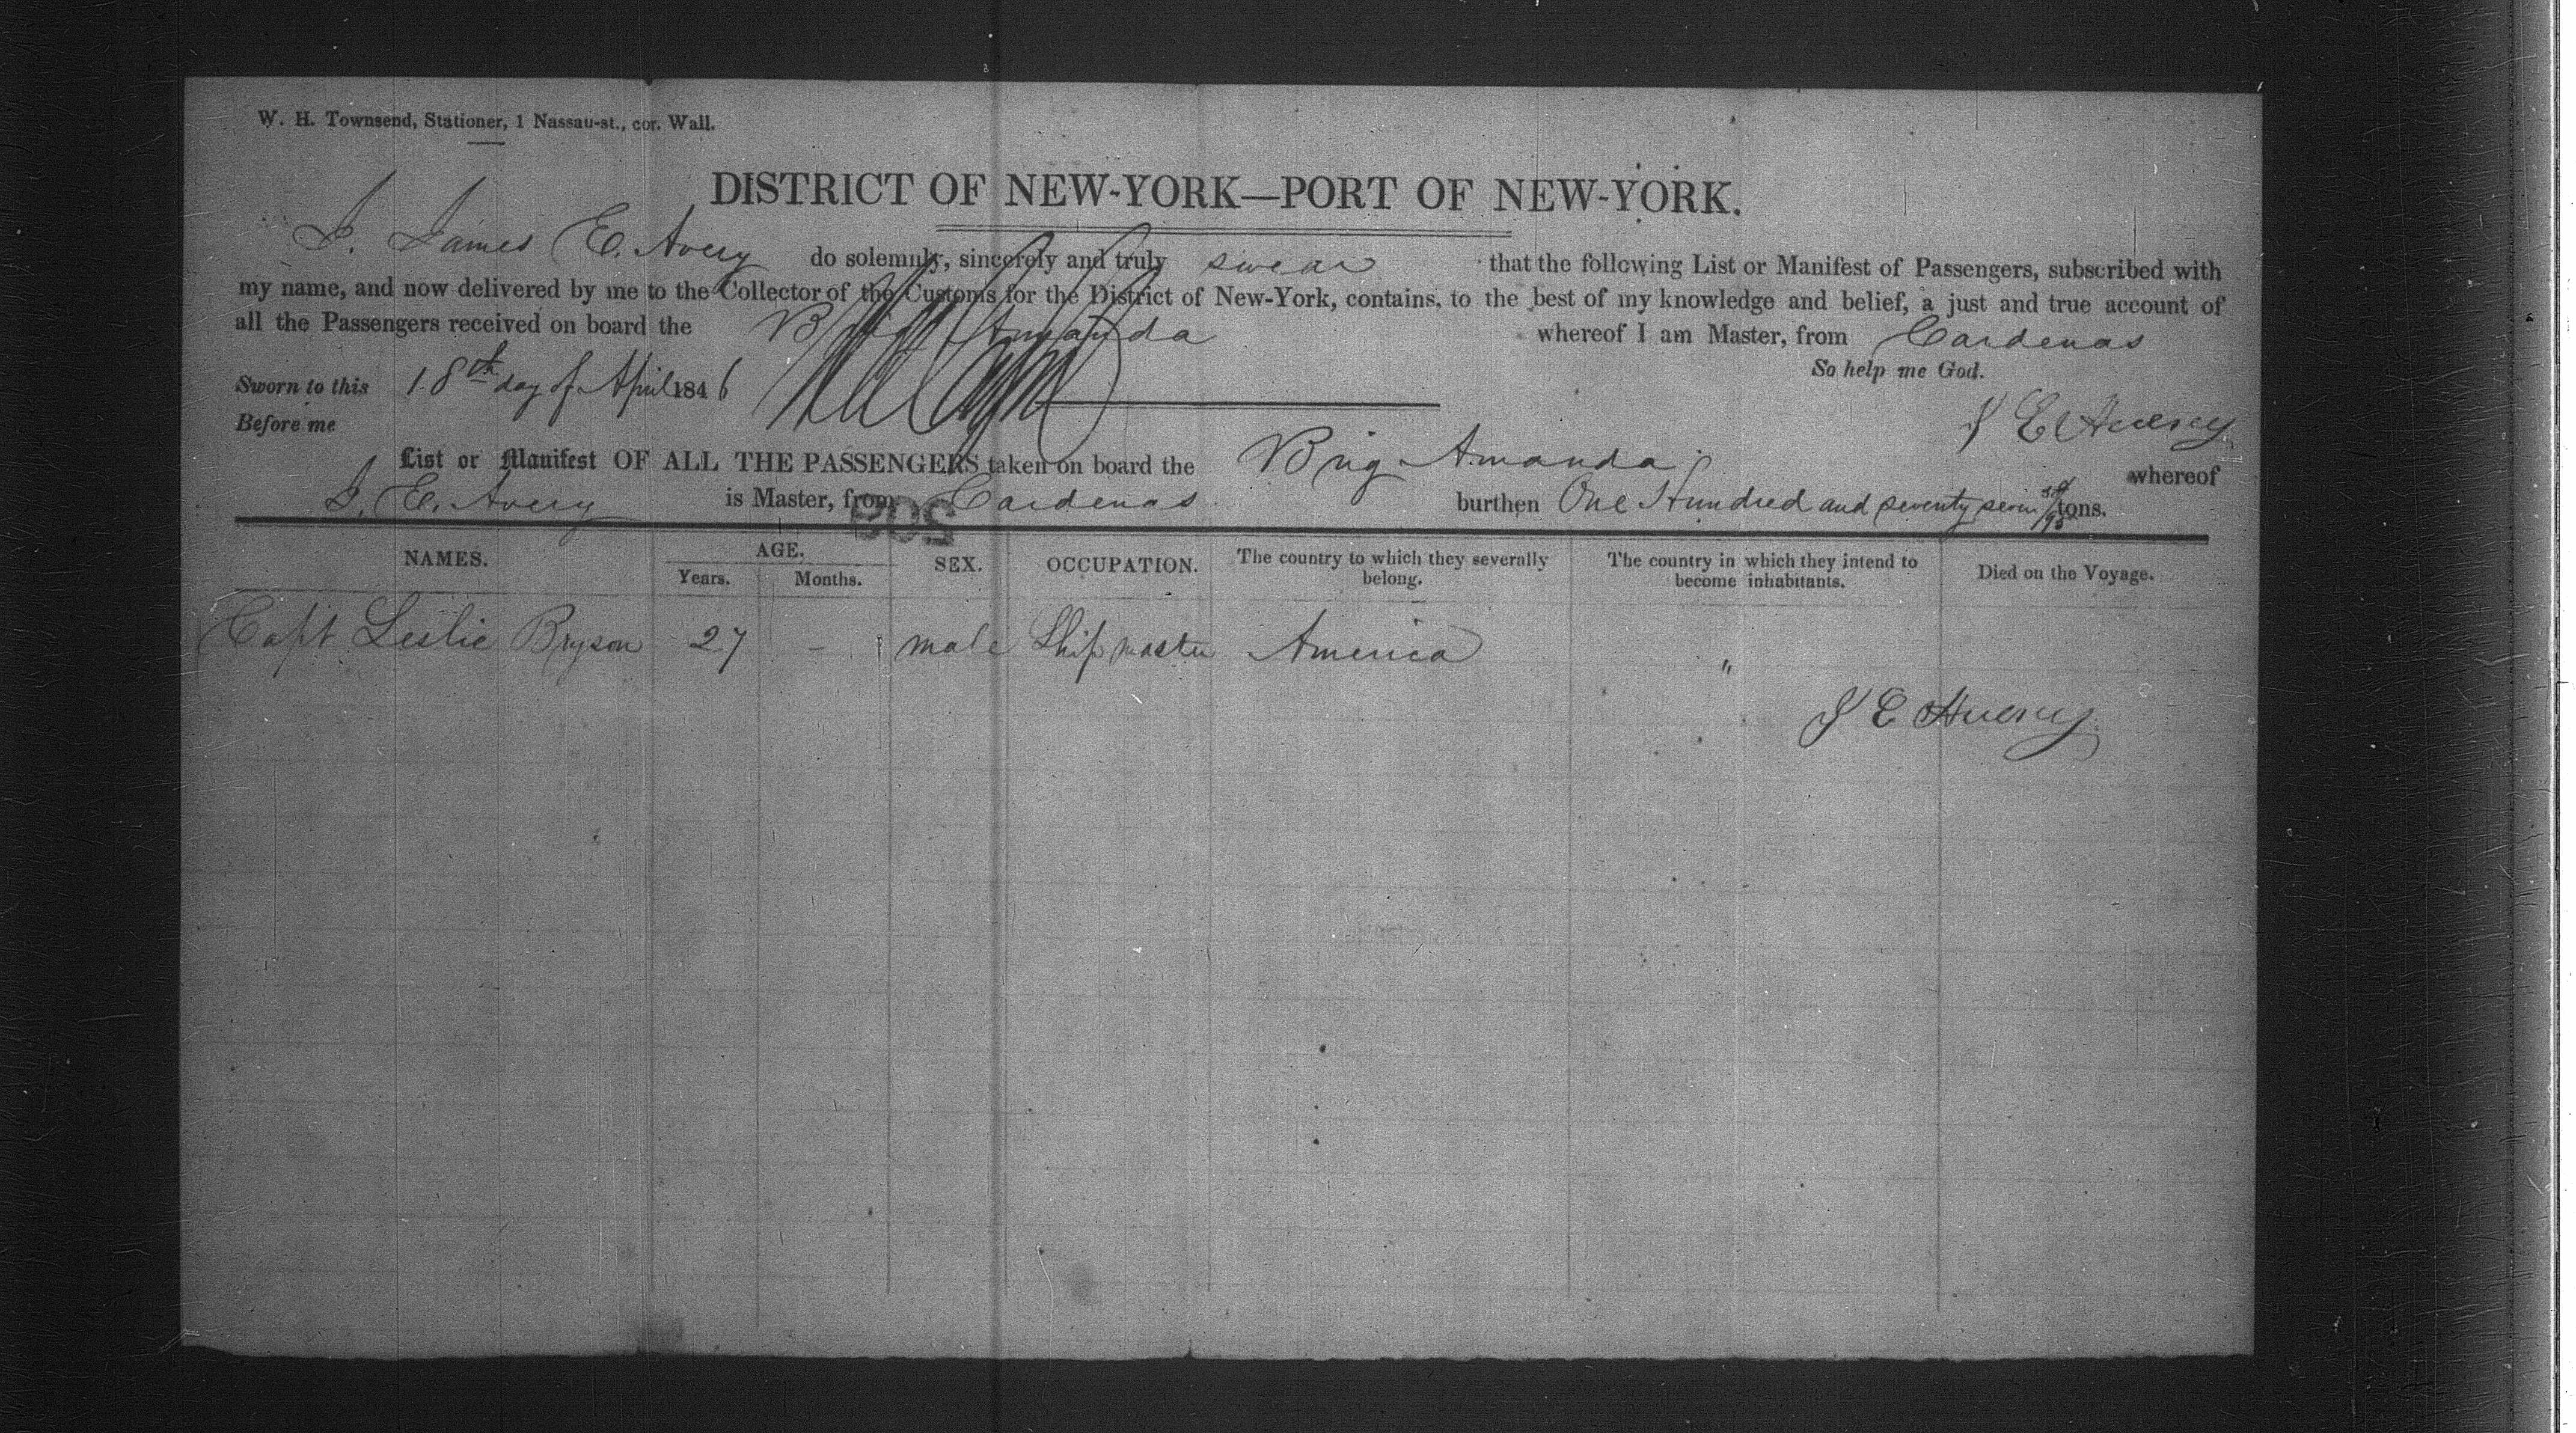 W. H. Townsend, Stationer, 1 Nassau-st., cor. Wall.
DISTRICT OF NEW-YORK—PORT OF NEW-YORK.
I. James E. Avery do solemnly, sincerely and truly swear that the following List or Manifest of Passengers, subscribed with
my name, and now delivered by me to the Collector of the Customs for the District of New-York, contains, to the best of my knowledge and belief, a just and true account of
all the Passengers received on board the Brig Amanda whereof I am Master, from Cardenas
So help me God.
Sworn to this 18th day of April 1846
Before me
J E Avery
List or Manifest OF ALL THE PASSENGERS taken on board the Brig Amanda whereof
J. E. Avery is Master, from Cardenas burthen One Hundred and seventy seven /95 tons.
503
NAMES. AGE. SEX. OCCUPATION. The country to which they severally belong. The country in which they intend to become inhabitants. Died on the Voyage.
Years. Months.
Capt Leslie Bryson 27 - male Ship master America "
J E Avery